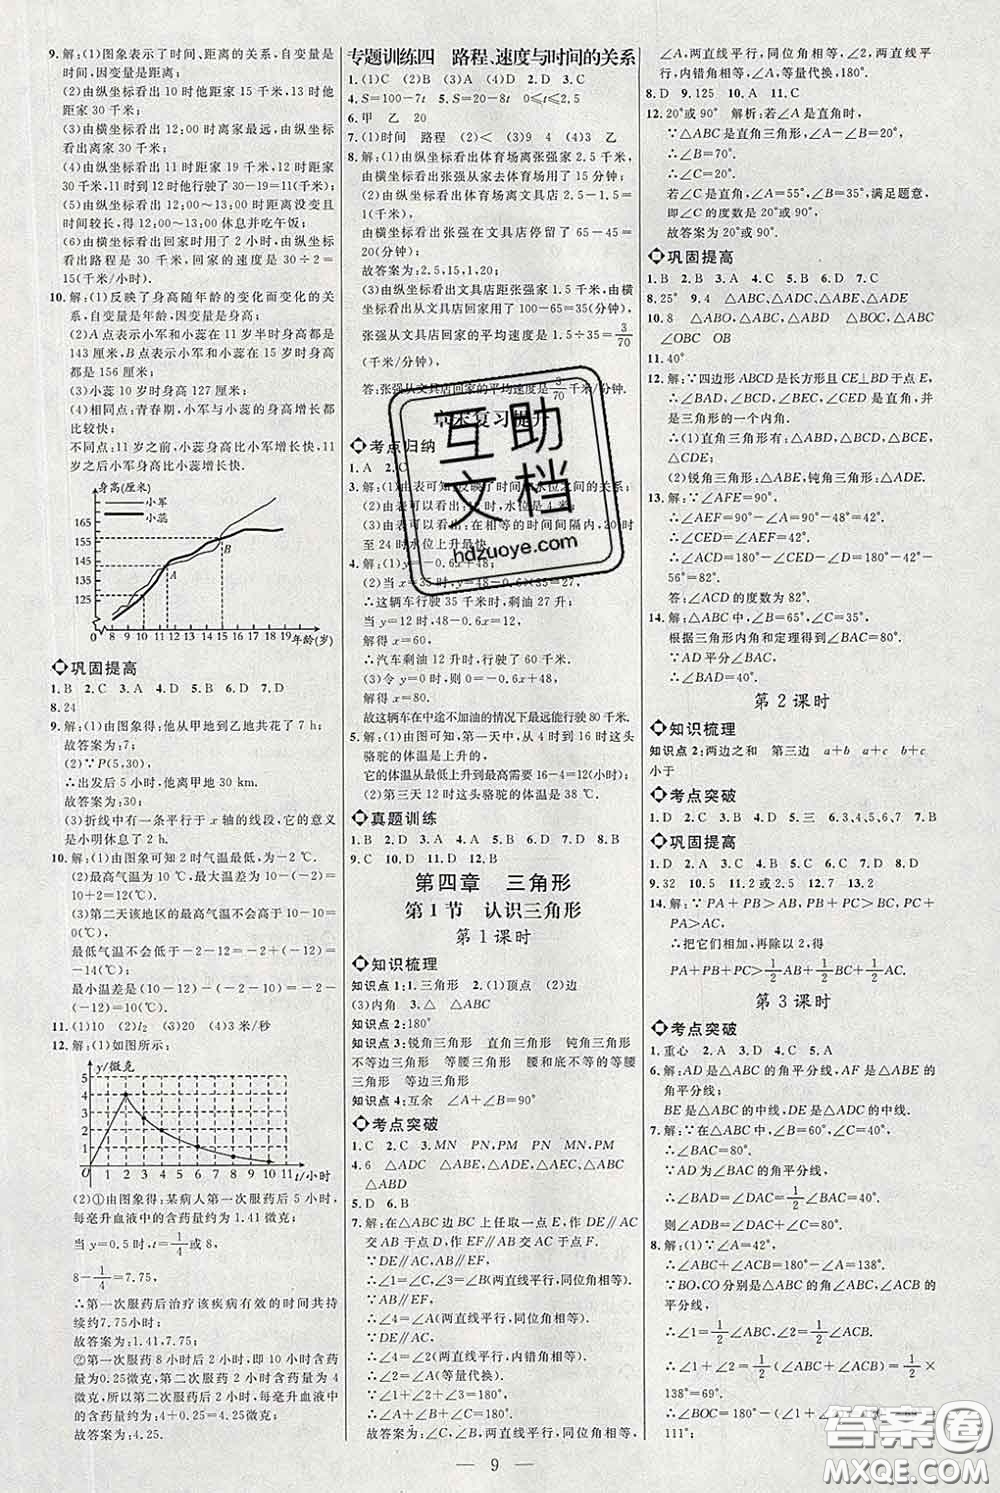 9. 解:(1)图象表示了时间、距离的关系,自变量是时间,因变量是距离;
(2)由纵坐标看出 10 时他距家 15 千米,13 时他距家 30 千米;
(3)由横坐标看出 12:00 时离家最远,由纵坐标看出离家 30 千米;
(4)由纵坐标看出 11 时距家 19 千米,12 时距家 30 千米,11 时到 12 时他行驶了 30-19=11(千米);
(5)由纵坐标看出 12:00~13:00 时距离没变且时间较长,得 12:00~13:00 休息并吃午饭;
(6)由横坐标看出回家时用了 2 小时,由纵坐标看出路程是 30 千米,回家的速度是 30÷2=15(千米/小时).
10. 解:(1)反映了身高随年龄的变化而变化的关系,自变量是年龄,因变量是身高;
(2)A 点表示小军和小蕊在 11 岁半时身高都是 143 厘米,B 点表示小军和小蕊在 15 岁时身高都是 156 厘米;
(3)小蕊 10 岁时身高 127 厘米;
(4)相同点:青春期,小军与小蕊的身高增长都比较快;
不同点:11 岁之前,小蕊身高比小军增长快,11 岁之后小军身高比小蕊增长快.
身高(厘米)
小军
小蕊
165
155
145
135
125
A
B
0 8 9 10 11 12 13 14 15 16 17 18 19 年龄(岁)
巩固提高
1. B 2. C 3. A 4. D 5. D 6. D 7. D
8. 24
9. 解:(1)由图象得:他从甲地到乙地共花了 7 h;
故答案为:7;
(2)∵P(5,30),
∴出发后 5 小时,他离甲地 30 km.
故答案为:30;
(3)折线中有一条平行于 x 轴的线段,它的意义是小明休息了 2 h.
10. 解:(1)由图象可知 2 时气温最低,为-2 ℃.
(2)最高气温为 10 ℃,最低气温为-2 ℃.
(3)第二天该地区的最高气温不会高于 10-10=0(℃)
最低气温不会低于-2-12=-2+(-12)=-14(℃);
最小温差是(10-12)-(-2-10)=-2-(-12)=10(℃).
11. (1)10 (2)l₂ (3)20 (4)3 米/秒
12. 解:(1)如图所示:
y/微克
5
4
3
2
1
0 1 2 3 4 5 6 7 8 9 10 11 t/小时
(2)①由图象得:某病人第一次服药后 5 小时,每毫升血液中的含药量约为 1.41 微克;
当 y=0.5 时,t=1/4 或 8,
8-1/4=7.75,
∴第一次服药后治疗该疾病有效的时间共持续约 7.75 小时;
故答案为:1.41,7.75;
②第一次服药 8 小时后 2 小时,即 10 小时含药量为 0.25 微克,第二次服药 2 小时含药量为 4 微克,所以第二次服药后 2 小时,每毫升血液中的含药量约为:4+0.25=4.25 微克;
故答案为:4.25.
专题训练四 路程、速度与时间的关系
1. (1)C (2)B (3)A (4)D 2. D 3. C
4. S=100-7t 5. S=20-8t 0≤t≤2.5
6. 甲 乙 20
7. (1)时间 路程 (2)< (3)9 4 (3)乙
8. 解:(1)由纵坐标看出体育场离张强家 2.5 千米,由横坐标看出张强从家到体育场用了 15 分钟;
(2)由纵坐标看出体育场离文具店 2.5-1.5=1(千米);
(3)由横坐标看出张强在文具店停留了 65-45=20(分钟);
故答案为:2.5,15,1,20;
(4)由纵坐标看出文具店距张强家 1.5 千米,由横坐标看出从文具店回家用了 100-65=35(分钟),
张强从文具店回家的平均速度是 1.5÷35=3/70(千米/分钟),
答:张强从文具店回家的平均速度是 3/70 千米/分钟.
章末复习提升
考点归纳
1. A 2. C
4. 解:(1)y=-0.6x+48;
(2)当 x=35 时,y=48-0.6×35=27,
∴这辆车行驶 35 千米时,剩油 27 升;
当 y=12 时,48-0.6x=12,
解得 x=60,
∴汽车剩油 12 升时,行驶了 60 千米.
(3)令 y=0 时,则 0=-0.6x+48,
解得 x=80.
故这辆车在中途不加油的情况下最远能行驶 80 千米.
5. 解:(1)由图可知,第一天中,从 4 时到 16 时这头骆驼的体温是上升的.
它的体温从最低上升到最高需要 16-4=12(小时);
(2)第三天 12 时这头骆驼的体温是 38 ℃.
真题训练
1. B 2. D 3. A 4. A 5. B 6. D 7. D 8. B
9. C 10. D 11. D 12. B
第四章 三角形
第 1 节 认识三角形
第 1 课时
知识梳理
知识点 1:1. 三角形 2. (1)顶点 (2)边
(3)内角 3. △ △ABC
知识点 2:180°
知识点 3:锐角三角形 直角三角形 钝角三角形
不等边三角形 等腰三角形 腰和底不等的等腰三角形 等边三角形
知识点 4:互余 ∠A+∠B=90°
考点突破
1. C 2. C 3. MN PN,PM PN MN,PM
4. 6 △ADC △ABE △ADC,△ABC,△DBC,△ABC
5. D 6. B
7. 解:在△ABC 边 BC 上任取一点 E,作 DE∥AC 交 AB 于点 D,作 EF∥AB 交 AC 于点 F.
∵DE∥AC,
∴∠1=∠C(两直线平行,同位角相等).
∵AB∥EF,
∴∠4=∠A(两直线平行,同位角相等),
∴∠4=∠2(两直线平行,内错角相等),
∴∠2=∠A(等量代换).
∵∠1+∠2+∠3=180°,
∴∠A+∠B+∠C=180°.
故答案为:AC,AB,∠C,两直线平行,同位角相等,
∠A,两直线平行,同位角相等,∠4,两直线平行,内错角相等,∠A,等量代换.
8. D 9. 125 10. A 11. C
12. 20°或 90° 解析:若∠A 是直角时,
∵△ABC 是直角三角形,∠A-∠B=20°,
∴∠B=70°.
∴∠C=20°.
若∠C 是直角,∠A=55°,∠B=35°,满足题意,
即∠C 的度数是 20°或 90°.
故答案为 20°或 90°.
巩固提高
1. B 2. B 3. A 4. C 5. B 6. D 7. C
8. 25° 9. 4 △ABC、△ADC、△ABE、△ADE
10. 8 △ABO、△ABC、△ABD △BOC、△ABC ∠OBC OB
11. 40°
12. 解:∵四边形 ABCD 是长方形且 CE⊥BD 于点 E,
∴∠BAD,∠BCD,∠BEC,∠CED 是直角,并且是三角形的一个内角.
∴(1)直角三角形有:△ABD,△BCD,△BEC,△CED;
(2)锐角三角形:△ABE,钝角三角形:△ADE.
13. 解:∵∠AFE=90°,
∴∠AEF=90°-∠A=90°-48°=42°.
∴∠CED=∠AEF=42°.
∴∠ACD=180°-∠CED-∠D=180°-42°-56°=82°.
答:∠ACD 的度数为 82°.
14. 解:∵△ABC 中,∠B=65°,∠C=35°,
根据三角形内角和定理得到∠BAC=80°.
∵AD 平分∠BAC,
∴∠BAD=40°.
第 2 课时
知识梳理
知识点 2:两边之和 第三边 a+b a+c b+c
小于
考点突破
1. D 2. A 3. C 4. A 5. 三 6. 3、4、5、6、7 7. B
巩固提高
1. D 2. A 3. C 4. A 5. B 6. C 7. D 8. D
9. 32 10. 5 11. 2 或 2.5 12. 7 13. 2
14. 解:∵PA+PB>AB,PB+PC>BC,PC+PA>AC.
∴把它们相加,再除以 2,得
PA+PB+PC>1/2AB+1/2BC+1/2AC.
第 3 课时
考点突破
1. 重心 2. A 3. D 4. C 5. A
6. 解:AD 是△ABC 的角平分线,AF 是△ABE 的角平分线;
BE 是△ABC 的中线,DE 是△ADC 的中线.
7. 解:∵在△ABC 中,∠B=60°,∠C=40°,
∴∠BAC=80°.
∵AD 是△ABC 的角平分线,
∴∠BAD=∠DAC=1/2∠BAC=40°.
∴∠ADB=∠DAC+∠C=80°.
8. 解:(1)∵∠A=42°,
∴∠ABC+∠ACB=180°-∠A=138°.
∵BO、CO 分别是△ABC 的角∠ABC、∠ACB 的平分线,
∴∠1=1/2∠ABC,∠2=1/2∠ACB,
∴∠1+∠2=1/2(∠ABC+∠ACB)=1/2×138°=69°.
∴∠BOC=180°-(∠1+∠2)=180°-69°=111°;
互助文档
hdzuoye.com
答案圈
MXQE.COM
9